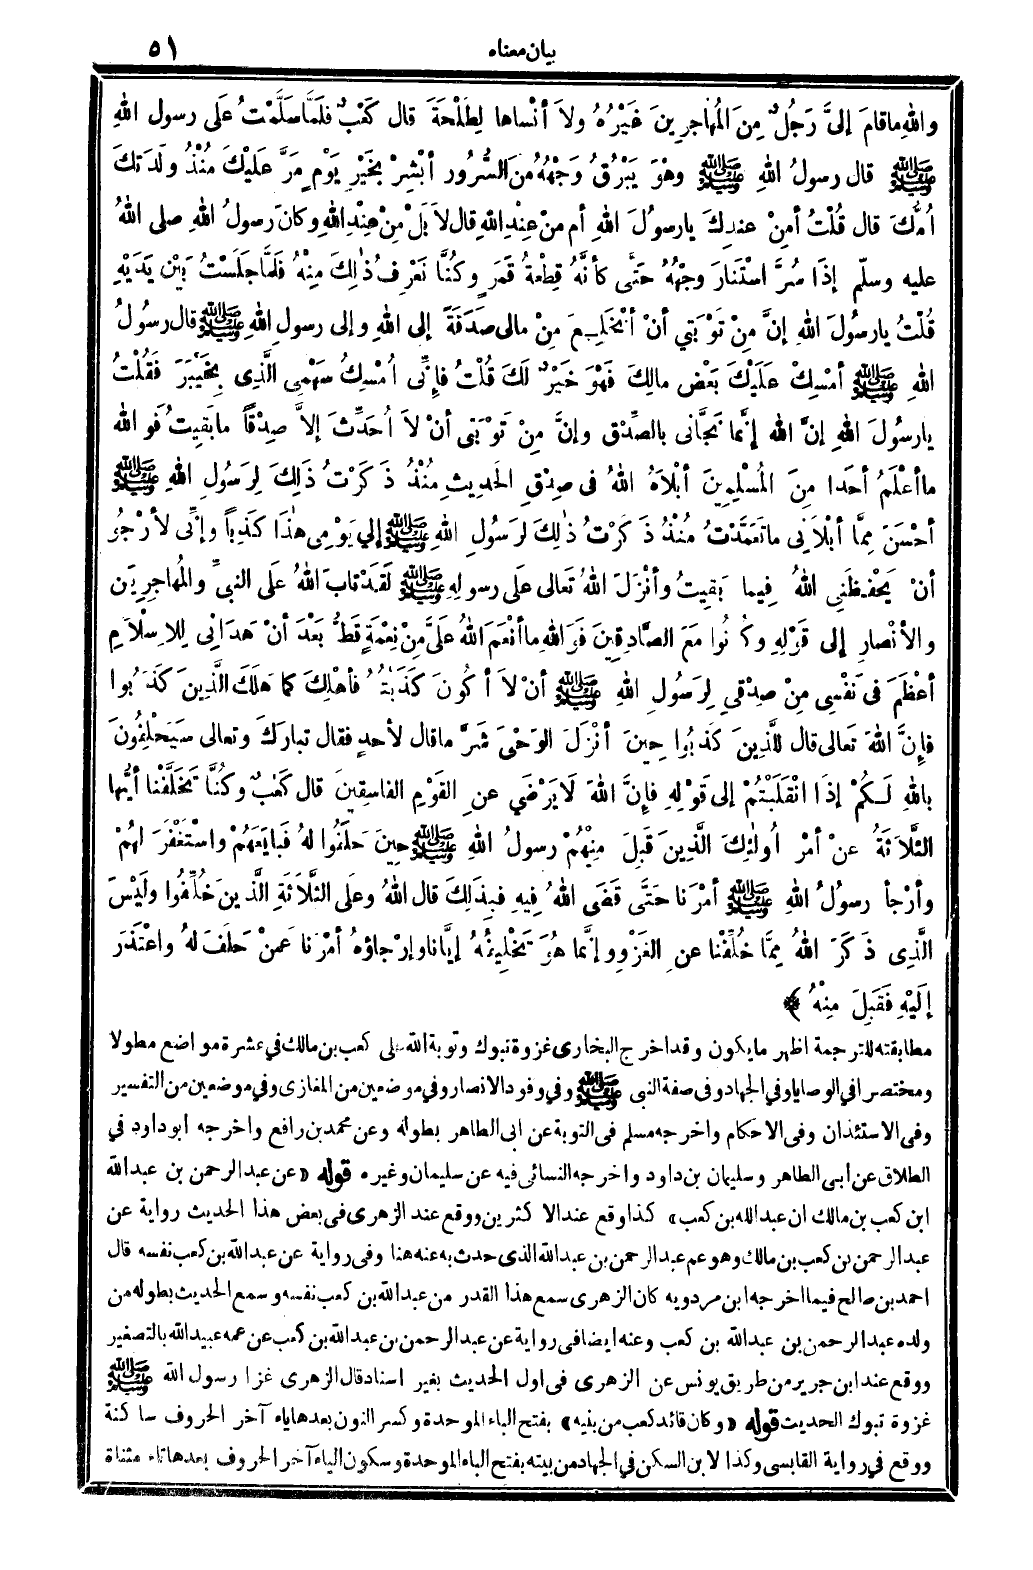 بيان معناه ٥١
واللهِ ماقامَ إلىَّ رَجُلٌ مِنَ المُهاجِرِينَ غَيْرُهُ ولاَ أنْساها لِطَلْحَةَ قال كَعْبٌ فَلَمَّا سَلَّمْتُ عَلَى رسول اللهِ
ﷺ قال رسولُ اللهِ ﷺ وهْوَ يَبْرُقُ وَجْهُهُ مِنَ السُّرُورِ أبْشِرْ بِخَيْرِ يَوْمٍ مَرَّ عَلَيْكَ مُنْذُ ولَدَتْكَ
اُمُّكَ قال قُلْتُ أمِنْ عندِكَ يارسولَ اللهِ أم مِنْ عِنْدِ اللهِ قال لاَ بَلْ مِنْ عِنْدِ اللهِ وكانَ رسولُ اللهِ صلى اللهُ
عليه وسلّم إذَا سُرَّ اسْتَنارَ وجْهُهُ حَتَّى كأنَّهُ قِطْعَةُ قَمَرٍ وكُنَّا نَعْرِفُ ذٰلِكَ مِنْهُ فَلَمَّا جلَسْتُ بَيْنَ يَدَيْهِ
قُلْتُ يارسُولَ اللهِ إنَّ مِنْ تَوْبَتِي أنْ أنْخَلِعَ مِنْ مالى صَدَقَةً إلى اللهِ وإلى رسولِ اللهِ ﷺ قال رسولُ
اللهِ ﷺ أمْسِكْ عَلَيْكَ بَعْضَ مالِكَ فَهْوَ خَيْرٌ لَكَ قُلْتُ فإنِّى اُمْسِكُ سَهْمِى الَّذِى بِخَيْبَرَ فَقُلْتُ
يارسُولَ اللهِ إنَّ الله إنَّما نَجَّانِى بالصِّدْقِ وإنَّ مِنْ تَوْبَتِى أنْ لاَ اُحَدِّثَ إلاَّ صِدْقاً مابَقِيتُ فَواللهِ
ماأعْلَمُ أحَدا مِنَ المُسْلِمِينَ أبْلاَهُ اللهُ فى صِدْقِ الحَدِيثِ مُنْذُ ذَكَرْتُ ذَلِكَ لِرَسُولِ اللهِ ﷺ
أحْسَنَ مِمَّا أبْلاَنِى ماتَعَمَّدْتُ مُنْذُ ذَكَرْتُ ذٰلِكَ لرَسُولِ اللهِ ﷺ إلي يَوْمِى هٰذَا كَذِباً وإنِّى لأرْجُو
أنْ يَحْفَظَنِى اللهُ فِيما بَقِيتُ وأنْزَلَ اللهُ تَعالى عَلَى رسولِهِ ﷺ لَقَدْ تابَ اللهُ عَلَى النبيِّ والمُهاجِرِينَ
والأنْصارِ إلى قَوْلِهِ وكُونُوا مَعَ الصَّادِقِينَ فَوَاللهِ ماأنْعَمَ اللهُ عَلَىَّ مِنْ نِعْمَةٍ قَطُّ بَعْدَ أنْ هَدَانِي لِلاِسْلاَمِ
أعْظَمَ فى نَفْسِى مِنْ صِدْقِي لِرَسُولِ اللهِ ﷺ أنْ لاَ أكُونَ كَذَبْتُهُ فأهْلِكَ كما هَلَكَ الَّذِينَ كَذَبُوا
فإنَّ اللهَ تَعالى قال لِلَّذِينَ كَذَبُوا حِينَ أنْزَلَ الوَحْىَ شَرَّ ماقال لأحدٍ فقال تبارَكَ وتعالى سَيَحْلِفُونَ
باللهِ لَكُمْ إذَا انْقَلَبْتُمْ إلى قَوْلِهِ فإنَّ اللهَ لاَ يَرْضَي عنِ القَوْمِ الفاسِقِينَ قال كَعْبٌ وكُنَّا تَخَلَّفْنا أيُّها
الثَّلاَثَةُ عنْ أمْرِ اُولٰئِكَ الَّذِينَ قَبِلَ مِنْهُمْ رسولُ اللهِ ﷺ حِينَ حَلَفُوا لهُ فَبايَعَهُمْ واسْتَغْفَرَ لهُمْ
وأرْجأ رسولُ اللهِ ﷺ أمْرَنا حَتَّى قَضَى اللهُ فِيهِ فبِذَلِكَ قال اللهُ وعَلى الثَّلاَثَةِ الَّذِينَ خُلِّفُوا ولَيْسَ
الَّذِى ذَكَرَ اللهُ مِمَّا خُلِّفْنا عنِ الغَزْوِ وإنَّما هُوَ تَخْلِيفُهُ إيَّانا وإرْجاؤهُ أمْرَنا عَمنْ حَلفَ لهُ واعْتَذَرَ
إلَيْهِ فَقَبِلَ مِنْهُ ﴾
مطابقته للترجمة اظهر مايكون وقد اخرج البخارى غزوة تبوك وتوبة الله على كعب بن مالك في عشرة مواضع مطولا
ومختصرا في الوصايا وفي الجهاد وفى صفة النبى ﷺ وفي وفود الانصار وفي موضعين من المغازى وفي موضعين من التفسير
وفى الاستئذان وفى الاحكام واخرجه مسلم فى التوبة عن ابى الطاهر بطوله وعن محمد بن رافع واخرجه ابو داود في
الطلاق عن أبى الطاهر وسليمان بن داود واخرجه النسائى فيه عن سليمان وغيره قوله «عن عبد الرحمن بن عبد الله
ابن كعب بن مالك ان عبد الله بن كعب» كذا وقع عند الاكثرين ووقع عند الزهرى فى بعض هذا الحديث رواية عن
عبد الرحمن بن كعب بن مالك وهو عم عبد الرحمن بن عبد الله الذى حدث به عنه هنا وفى رواية عن عبد الله بن كعب نفسه قال
احمد بن صالح فيما اخرجه ابن مردويه كان الزهرى سمع هذا القدر من عبد الله بن كعب نفسه وسمع الحديث بطوله من
ولده عبد الرحمن بن عبد الله بن كعب وعنه ايضا فى رواية عن عبد الرحمن بن عبد الله بن كعب عن عمه عبيد الله بالتصغير
ووقع عند ابن جرير من طريق يونس عن الزهرى فى اول الحديث بغير اسناد قال الزهرى غزا رسول الله ﷺ
غزوة تبوك الحديث قوله «وكان قائد كعب من بنيه» بفتح الباء الموحدة وكسر النون بعدها ياء آخر الحروف ساكنة
ووقع في رواية القابسى وكذا لابن السكن في الجهاد من بيته بفتح الباء الموحدة وسكون الياء آخر الحروف بعدها تاء مثناة